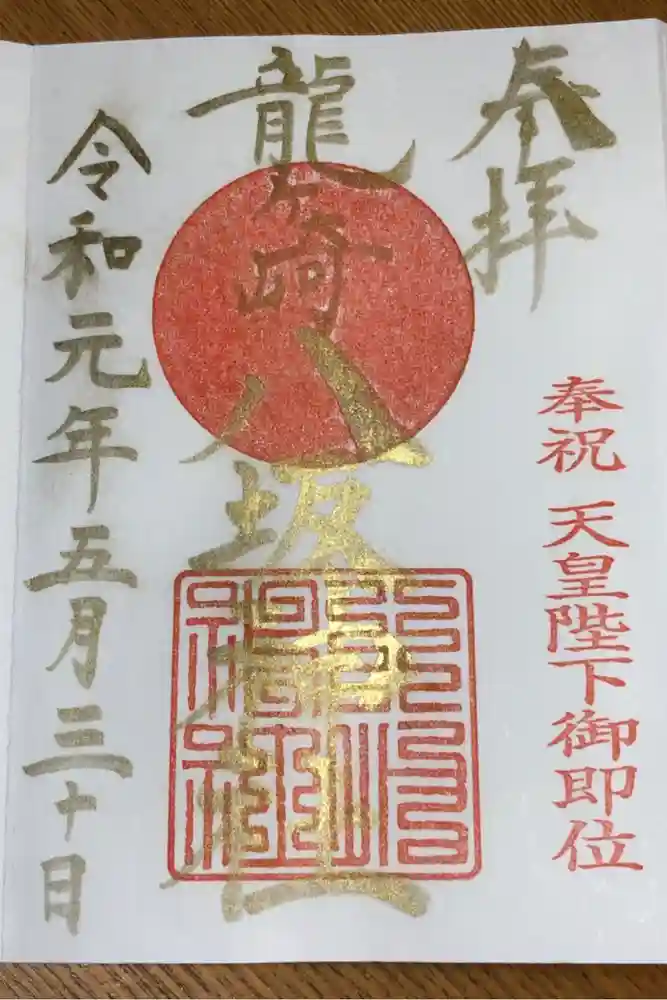 奉拝
奉祝 天皇陛下御即位
龍ヶ崎八坂神社
令和元年五月三十日